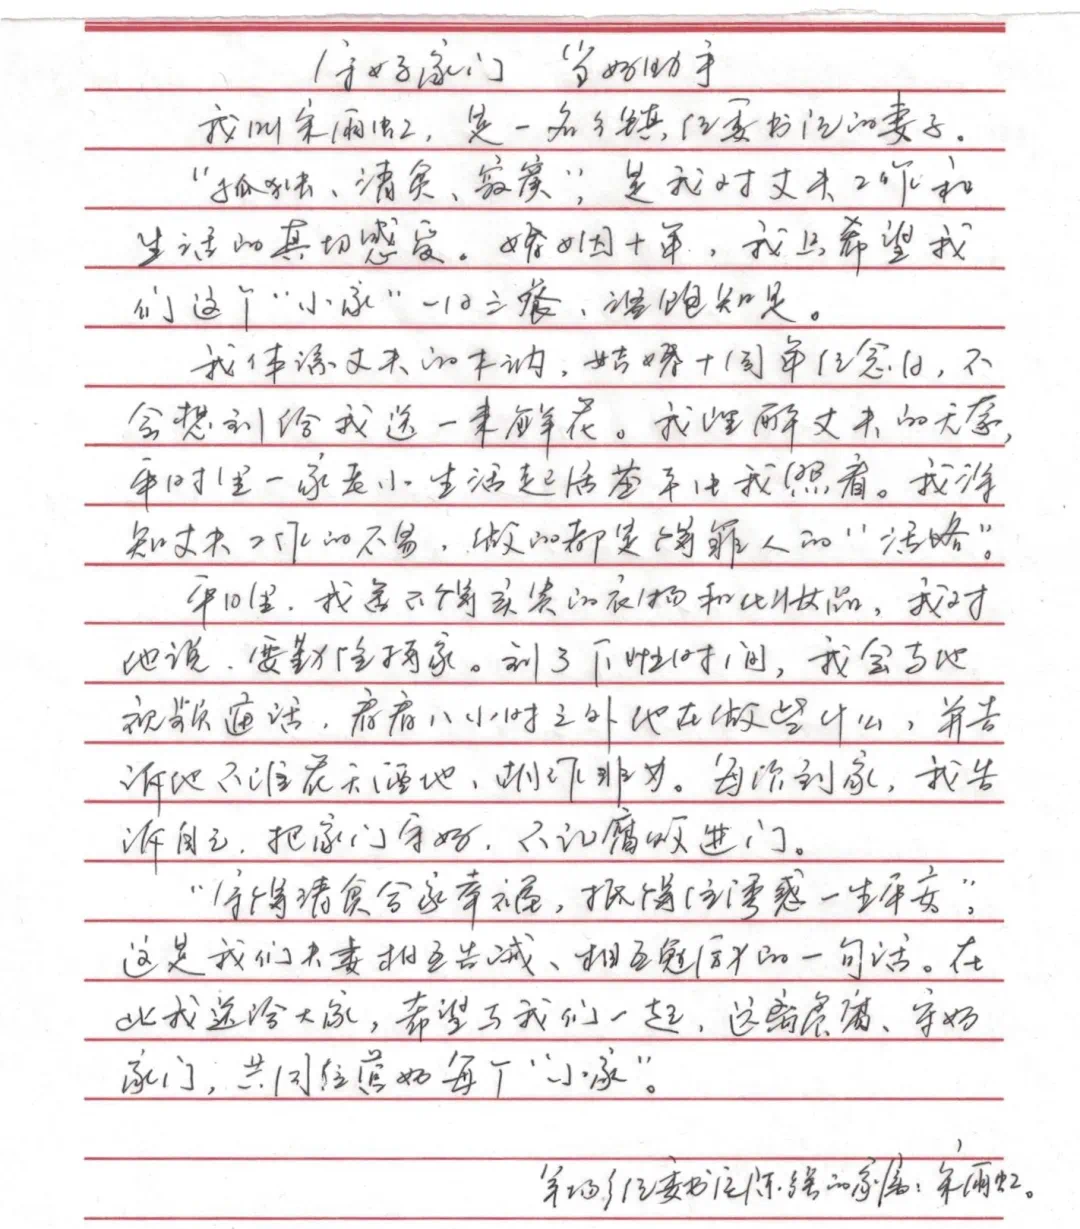 守好家门 当好助手
我叫宋雨虹，是一名乡镇纪委书记的妻子。
“孤独、清贫、寂寞”，是我对丈夫工作和
生活的真切感受。婚姻十年，我只希望我
们这个“小家”一日三餐、温饱知足。
我体谅丈夫的木讷，结婚十周年纪念日，不
会想到给我送一束鲜花。我理解丈夫的无奈，
平时里一家老小生活起居基本由我照看。我深
知丈夫工作的不易，做的都是得罪人的“活路”。
平日里，我舍不得买贵的衣物和化妆品，我对
他说，要勤俭持家。到了下班时间，我会与他
视频通话，看看八小时之外他在做些什么，并告
诉他不准花天酒地、胡作非为。每次到家，我告
诉自己，把家门守好，不让腐败进门。
“守得清贫合家幸福，抵得住诱惑一生平安”，
这是我们夫妻相互告诫、相互勉励的一句话。在
此我送给大家，希望与我们一起，远离贪腐、守好
家门，共同经营好每个“小家”。
乡纪委书记陈 的家属：宋雨虹。